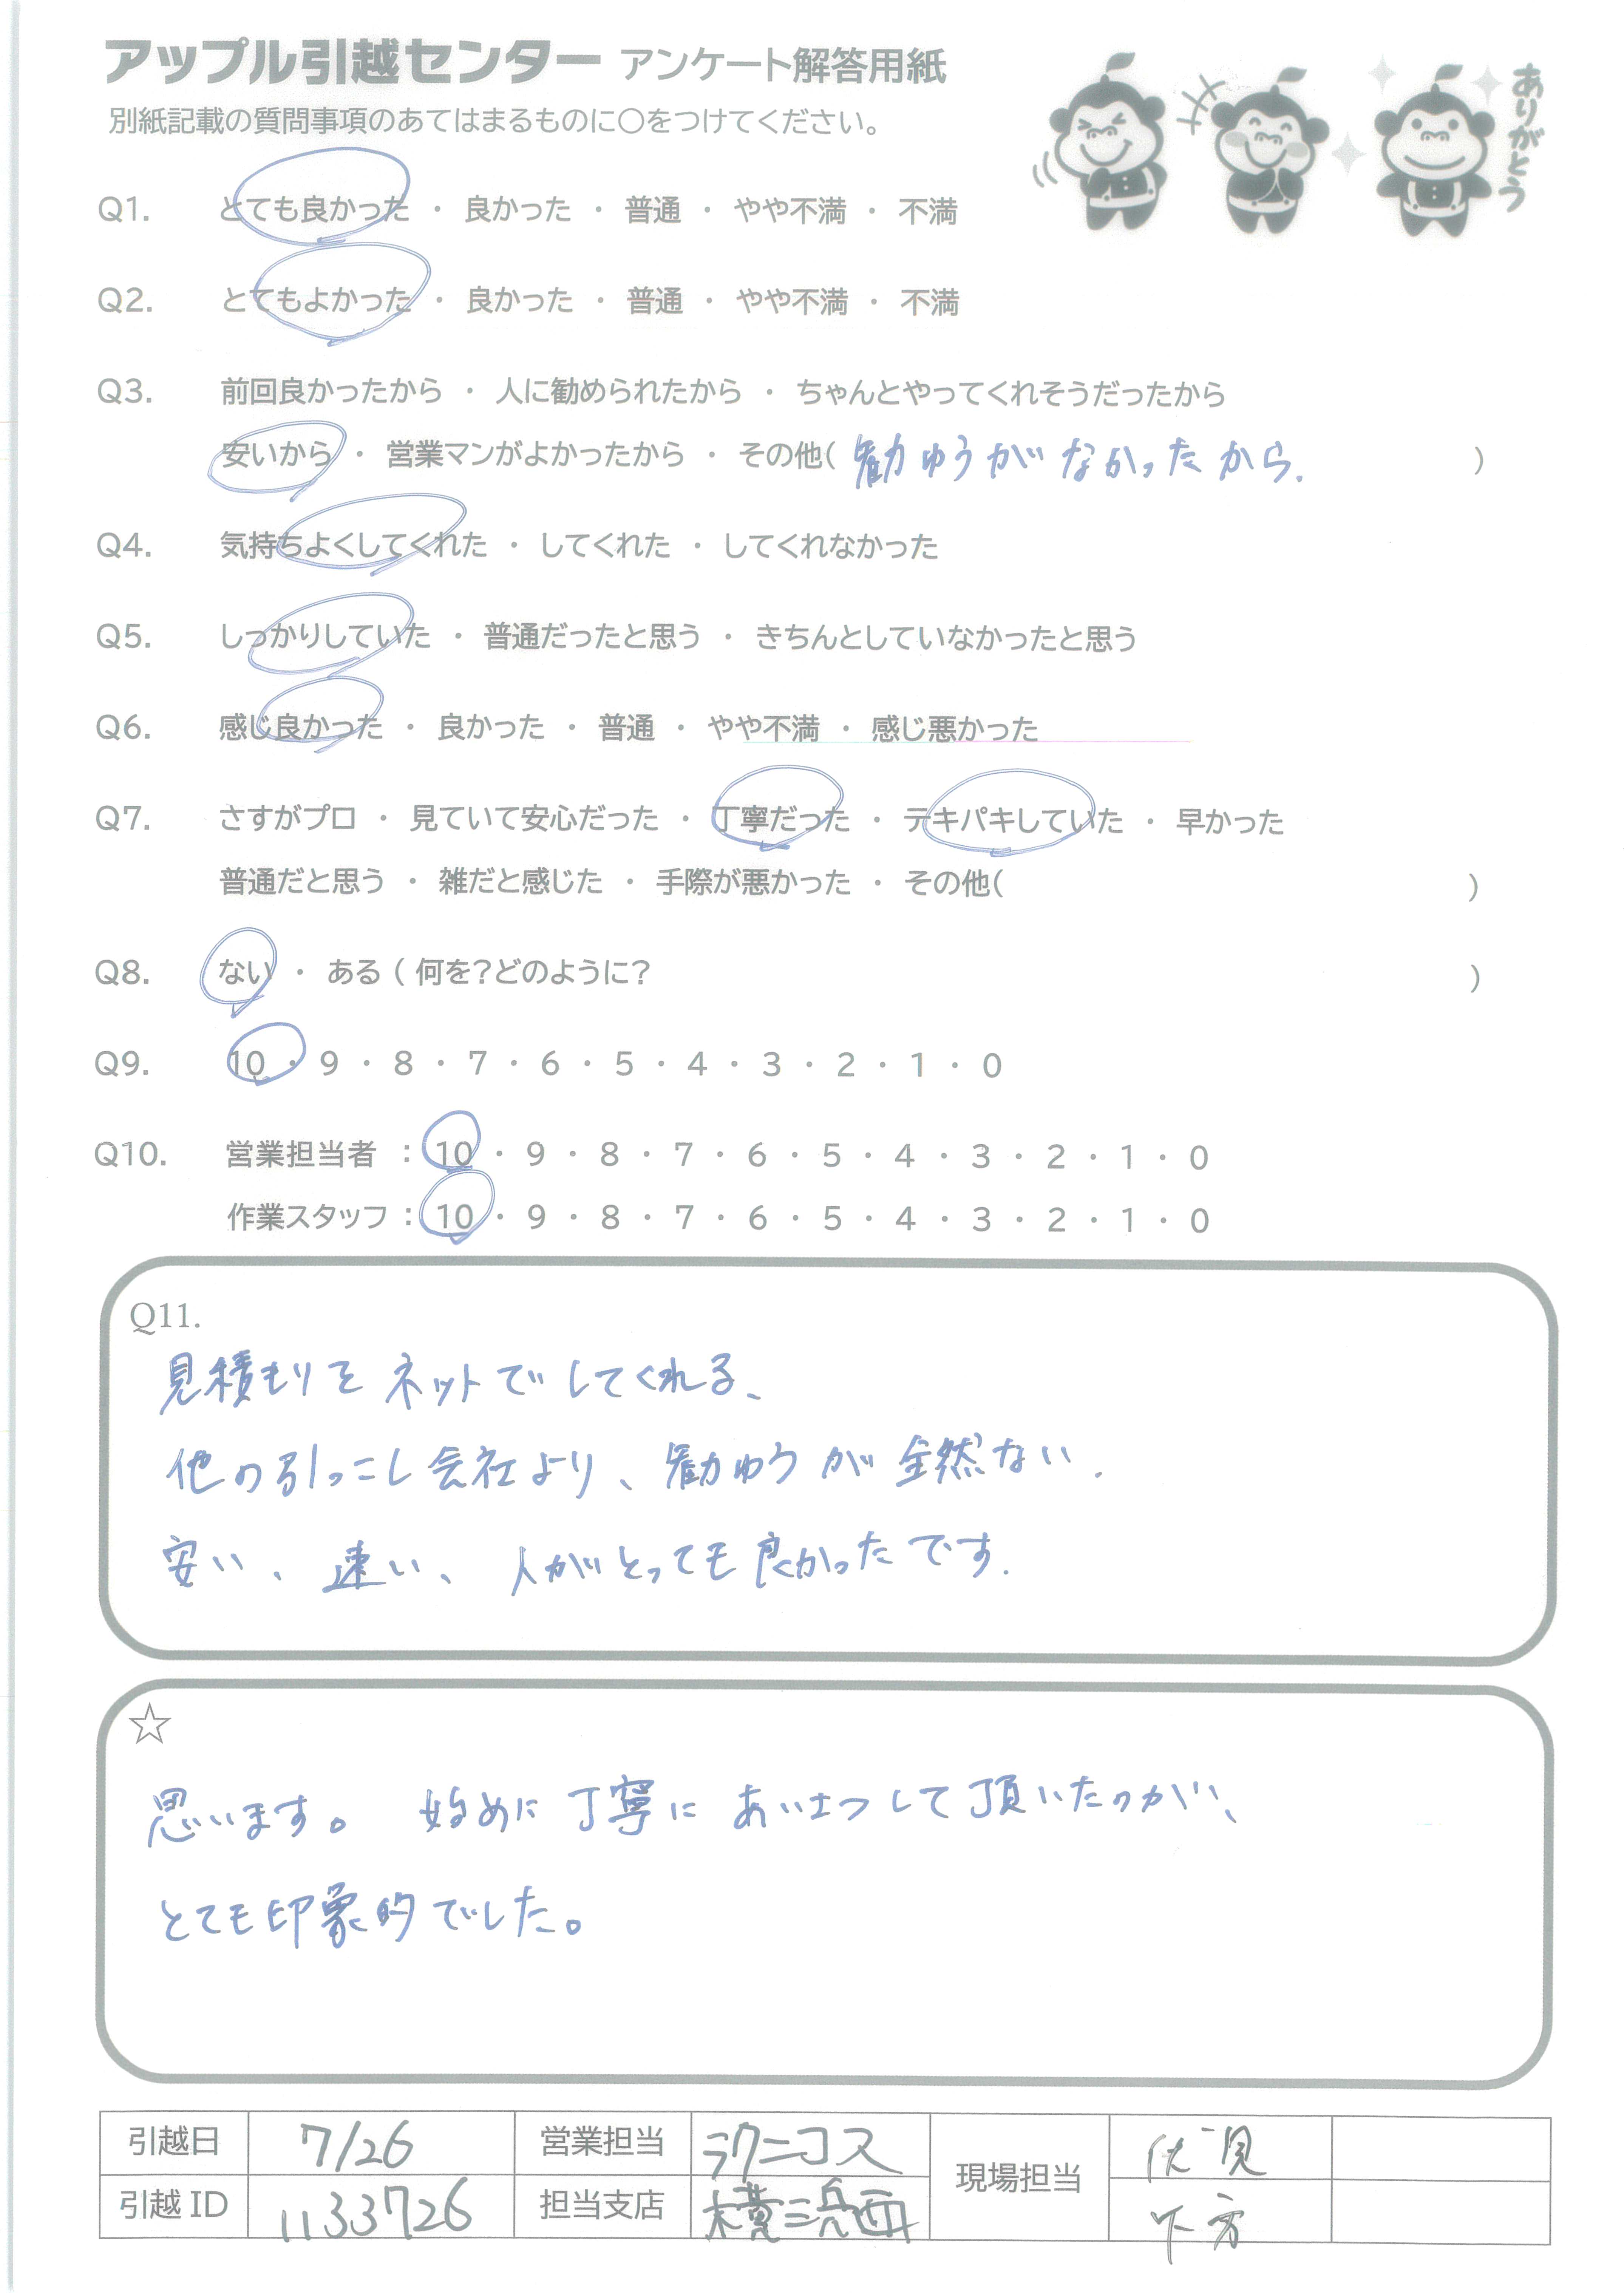 アップル引越センター アンケート解答用紙
別紙記載の質問事項のあてはまるものに○をつけてください。
ありがとう
Q1. とても良かった ・ 良かった ・ 普通 ・ やや不満 ・ 不満
Q2. とてもよかった ・ 良かった ・ 普通 ・ やや不満 ・ 不満
Q3. 前回良かったから ・ 人に勧められたから ・ ちゃんとやってくれそうだったから
安いから ・ 営業マンがよかったから ・ その他( 勧ゆうがなかったから. )
Q4. 気持ちよくしてくれた ・ してくれた ・ してくれなかった
Q5. しっかりしていた ・ 普通だったと思う ・ きちんとしていなかったと思う
Q6. 感じ良かった ・ 良かった ・ 普通 ・ やや不満 ・ 感じ悪かった
Q7. さすがプロ ・ 見ていて安心だった ・ 丁寧だった ・ テキパキしていた ・ 早かった
普通だと思う ・ 雑だと感じた ・ 手際が悪かった ・ その他( )
Q8. ない ・ ある ( 何を?どのように? )
Q9. 10 ・ 9 ・ 8 ・ 7 ・ 6 ・ 5 ・ 4 ・ 3 ・ 2 ・ 1 ・ 0
Q10. 営業担当者 : 10 ・ 9 ・ 8 ・ 7 ・ 6 ・ 5 ・ 4 ・ 3 ・ 2 ・ 1 ・ 0
作業スタッフ : 10 ・ 9 ・ 8 ・ 7 ・ 6 ・ 5 ・ 4 ・ 3 ・ 2 ・ 1 ・ 0
Q11.
見積もりをネットでしてくれる、
他の引っこし会社より、勧ゆうが全然ない.
安い、速い、人がとっても良かったです.
☆
思います。 始めに丁寧にあいさつして頂いたのが、
とても印象的でした。
引越日 7/26 営業担当 ラクニコス 現場担当 伏見
引越 ID 1133726 担当支店 下方